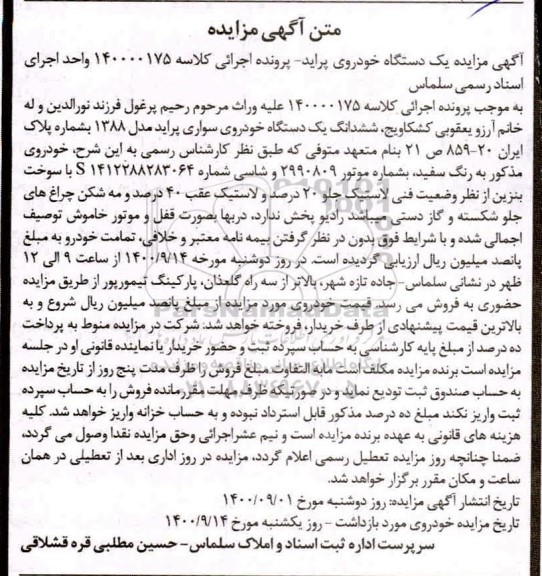 متن آگهی مزایده
آگهی مزایده یک دستگاه خودروی پراید- پرونده اجرائی کلاسه ۱۴۰۰۰۰۱۷۵ واحد اجرای
اسناد رسمی سلماس
به موجب پرونده اجرائی کلاسه ۱۴۰۰۰۰۱۷۵ علیه وراث مرحوم رحیم پرغول فرزند نورالدین و له
خانم آرزو یعقوبی کشکاویج، ششدانگ یک دستگاه خودروی سواری پراید مدل ۱۳۸۸ بشماره پلاک
ایران ۲۰-۸۵۹ ص ۲۱ بنام متعهد متوفی که طبق نظر کارشناس رسمی به این شرح، خودروی
مذکور به رنگ سفید، بشماره موتور ۲۹۹۰۸۰۹ و شاسی شماره S ۱۴۱۲۲۸۸۲۸۳۰۶۴ با سوخت
بنزین از نظر وضعیت فنی لاستیک جلو ۲۰ درصد و لاستیک عقب ۴۰ درصد و مه شکن چراغ های
جلو شکسته و گاز دستی میباشد رادیو پخش ندارد، دربها بصورت قفل و موتور خاموش توصیف
اجمالی شده و با شرایط فوق بدون در نظر گرفتن بیمه نامه معتبر و خلافی، تمامت خودرو به مبلغ
پانصد میلیون ریال ارزیابی گردیده است. در روز دوشنبه مورخه ۱۴۰۰/۹/۱۴ از ساعت ۹ الی ۱۲
ظهر در نشانی سلماس- جاده تازه شهر، بالاتر از سه راه گلعذان، پارکینگ تیمورپور از طریق مزایده
حضوری به فروش می رسد. قیمت خودروی مورد مزایده از مبلغ پانصد میلیون ریال شروع و به
بالاترین قیمت پیشنهادی از طرف خریدار، فروخته خواهد شد. شرکت در مزایده منوط به پرداخت
ده درصد از مبلغ پایه کارشناسی به حساب سپرده ثبت و حضور خریدار یا نماینده قانونی او در جلسه
مزایده است برنده مزایده مکلف است مابه التفاوت مبلغ فروش را ظرف مدت پنج روز از تاریخ مزایده
به حساب صندوق ثبت تودیع نماید و در صورتیکه ظرف مهلت مقرر مانده فروش را به حساب سپرده
ثبت واریز نکند مبلغ ده درصد مذکور قابل استرداد نبوده و به حساب خزانه واریز خواهد شد. کلیه
هزینه های قانونی به عهده برنده مزایده است و نیم عشر اجرائی وحق مزایده نقدا وصول می گردد،
ضمنا چنانچه روز مزایده تعطیل رسمی اعلام گردد، مزایده در روز اداری بعد از تعطیلی در همان
ساعت و مکان مقرر برگزار خواهد شد.
تاریخ انتشار آگهی مزایده: روز دوشنبه مورخ ۱۴۰۰/۰۹/۰۱
تاریخ مزایده خودروی مورد بازداشت - روز یکشنبه مورخ ۱۴۰۰/۹/۱۴
سرپرست اداره ثبت اسناد و املاک سلماس- حسین مطلبی قره قشلاقی